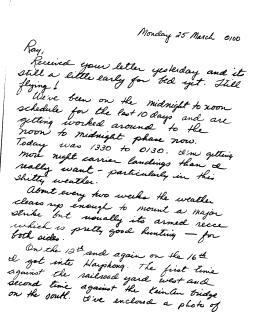 Monday 25 March 0100
Ray,
Received your letter yesterday and its
still a little early for bed yet. Still
flying!
We've been on the midnight to noon
schedule for the past 10 days and are
getting worked around to the
noon to midnight phase now.
Today was 1330 to 0130. I'm getting
more night carrier landings than I
really want - particularly in this
shitty weather.
About every two weeks the weather
clears up enough to mount a major
strike but usually its armed recce
which is pretty good hunting - for
both sides.
On the 12th and again on the 16th
I got into Haiphong. The first time
against the railroad yard west and
second time against the bridge
on the south. I've enclosed a photo of